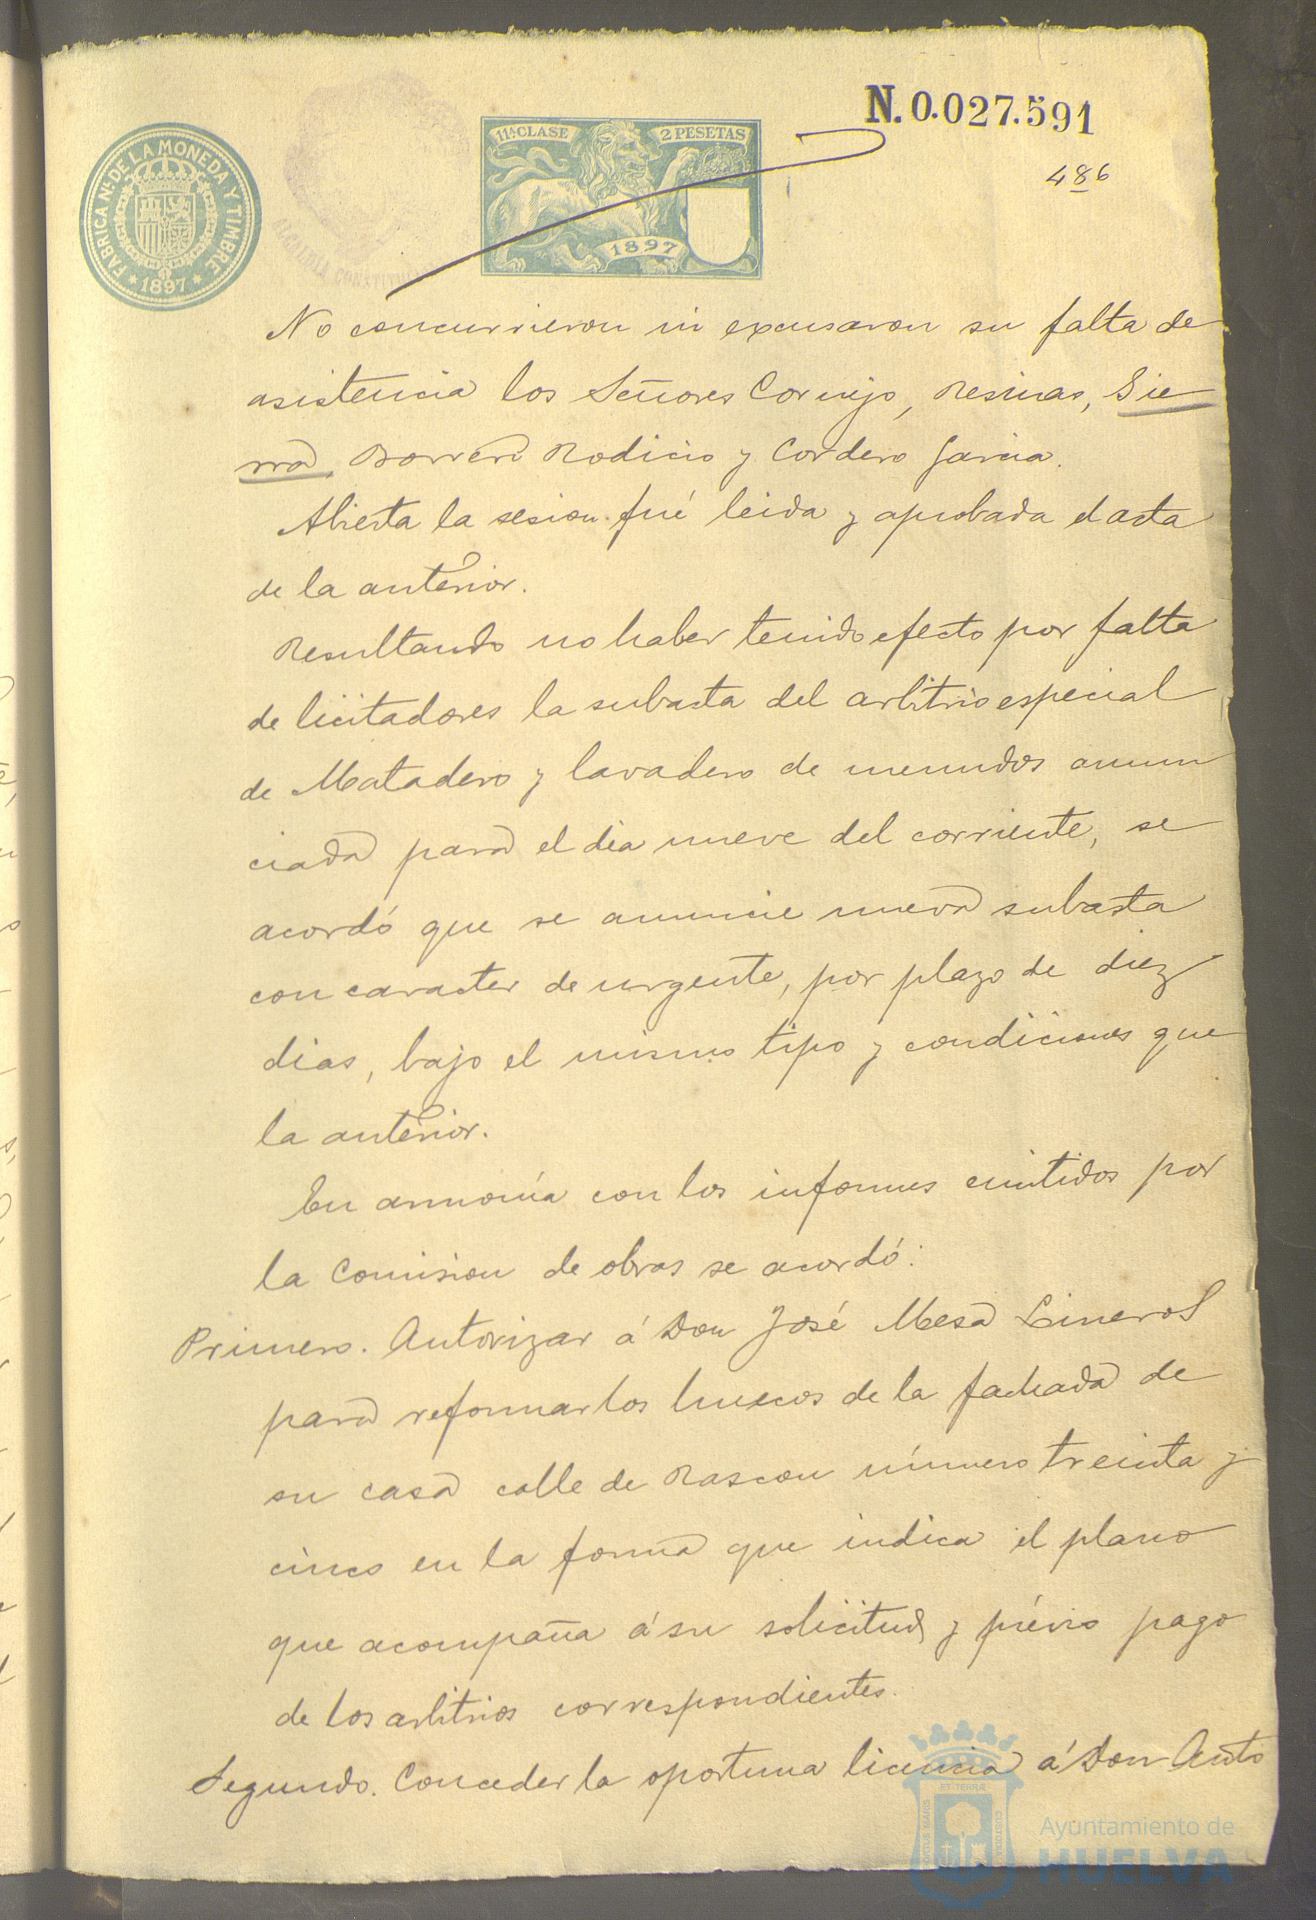 N. 0.027.591
486
11ª CLASE 2 PESETAS
1897
FABRICA Nl. DE LA MONEDA Y TIMBRE
* 1897 *
ALCALDIA CONSTITU
No concurrieron ni excusaron su falta de
asistencia los Señores Cornejo, Resinas, Sie
rra, Borrero Rodicio y Cordero Garcia.
Abierta la sesion fué leida y aprobada el acta
de la anterior.
Resultando no haber tenido efecto por falta
de licitadores la subasta del arbitrio especial
de Matadero y lavadero de menudos anun
ciada para el dia nueve del corriente, se
acordó que se anuncie nueva subasta
con caracter de urgente, por plazo de diez
dias, bajo el mismo tipo y condiciones que
la anterior.
En armonía con los informes emitidos por
la Comision de obras se acordó:
Primero. Autorizar á Don José Mesa Lineros
para reformar los huecos de la fachada de
su casa calle de Rascon número treinta y
cinco en la forma que indica el plano
que acompaña á su solicitud y prévio pago
de los arbitrios correspondientes.
Segundo. Conceder la oportuna licencia á Don Anto
PORTUS MARIS ET TERRÆ CUSTODIA
Ayuntamiento de
HUELVA